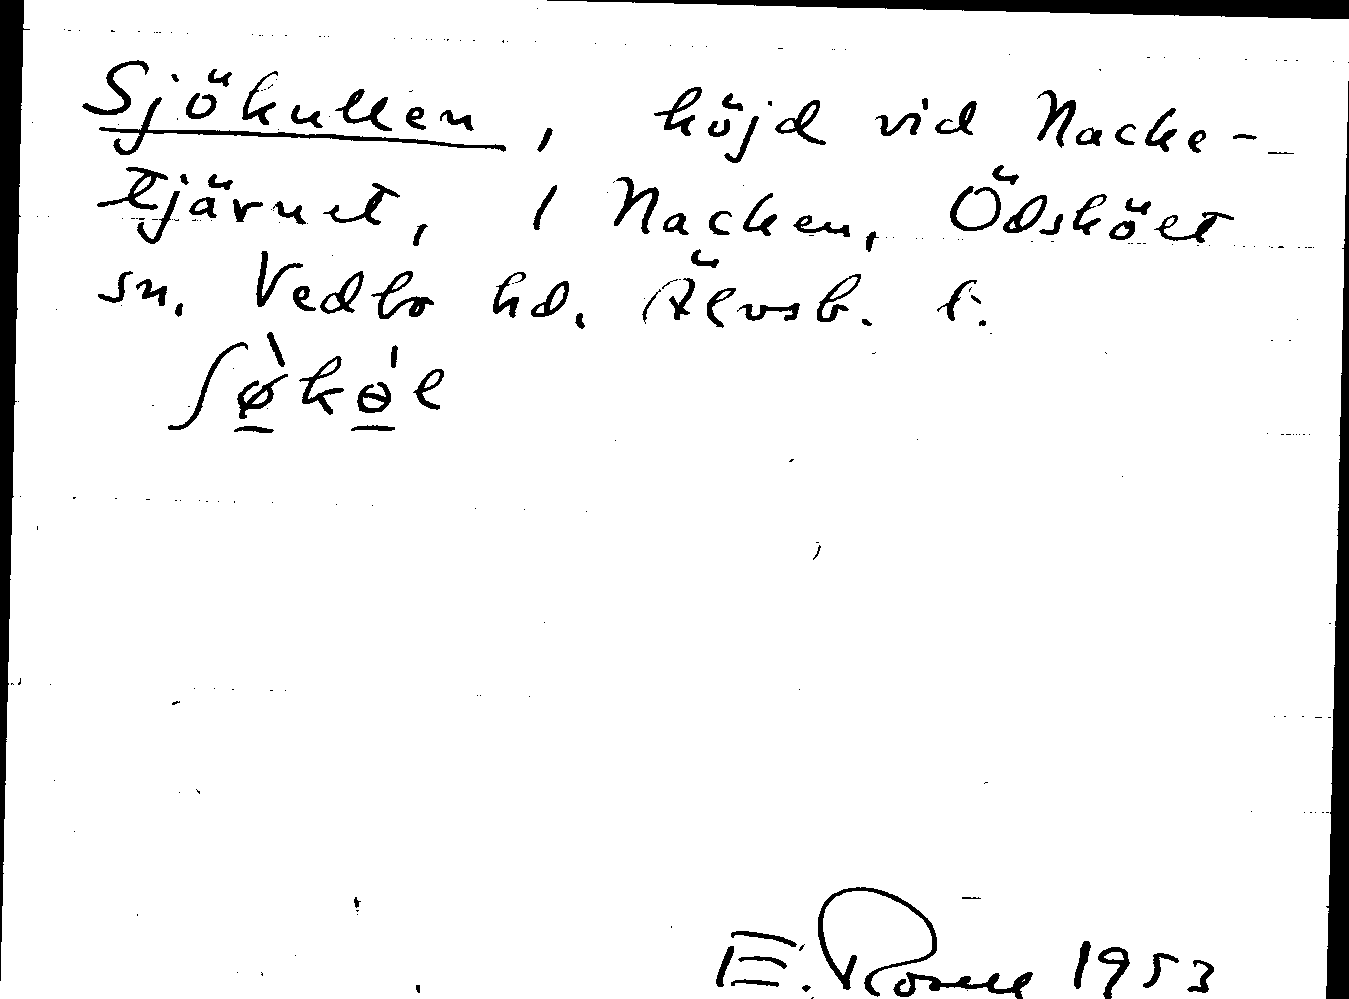 Sjökullen, höjd vid Nacke-
tjärnet, 1 Nacken, Ödsköët
sn. Vedbo hd. Älvsb. l.
ʃø̠̀kɵ̠́l
E. Rosell 1953